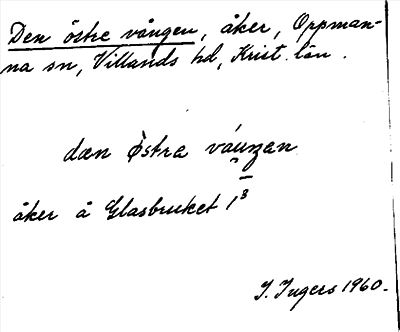 Den östre vången, åker, Oppman-
na sn, Villands hd, Krist. län.
dæn østra váuŋan
åker å Glasbruket 1³
I. Ingers 1960.